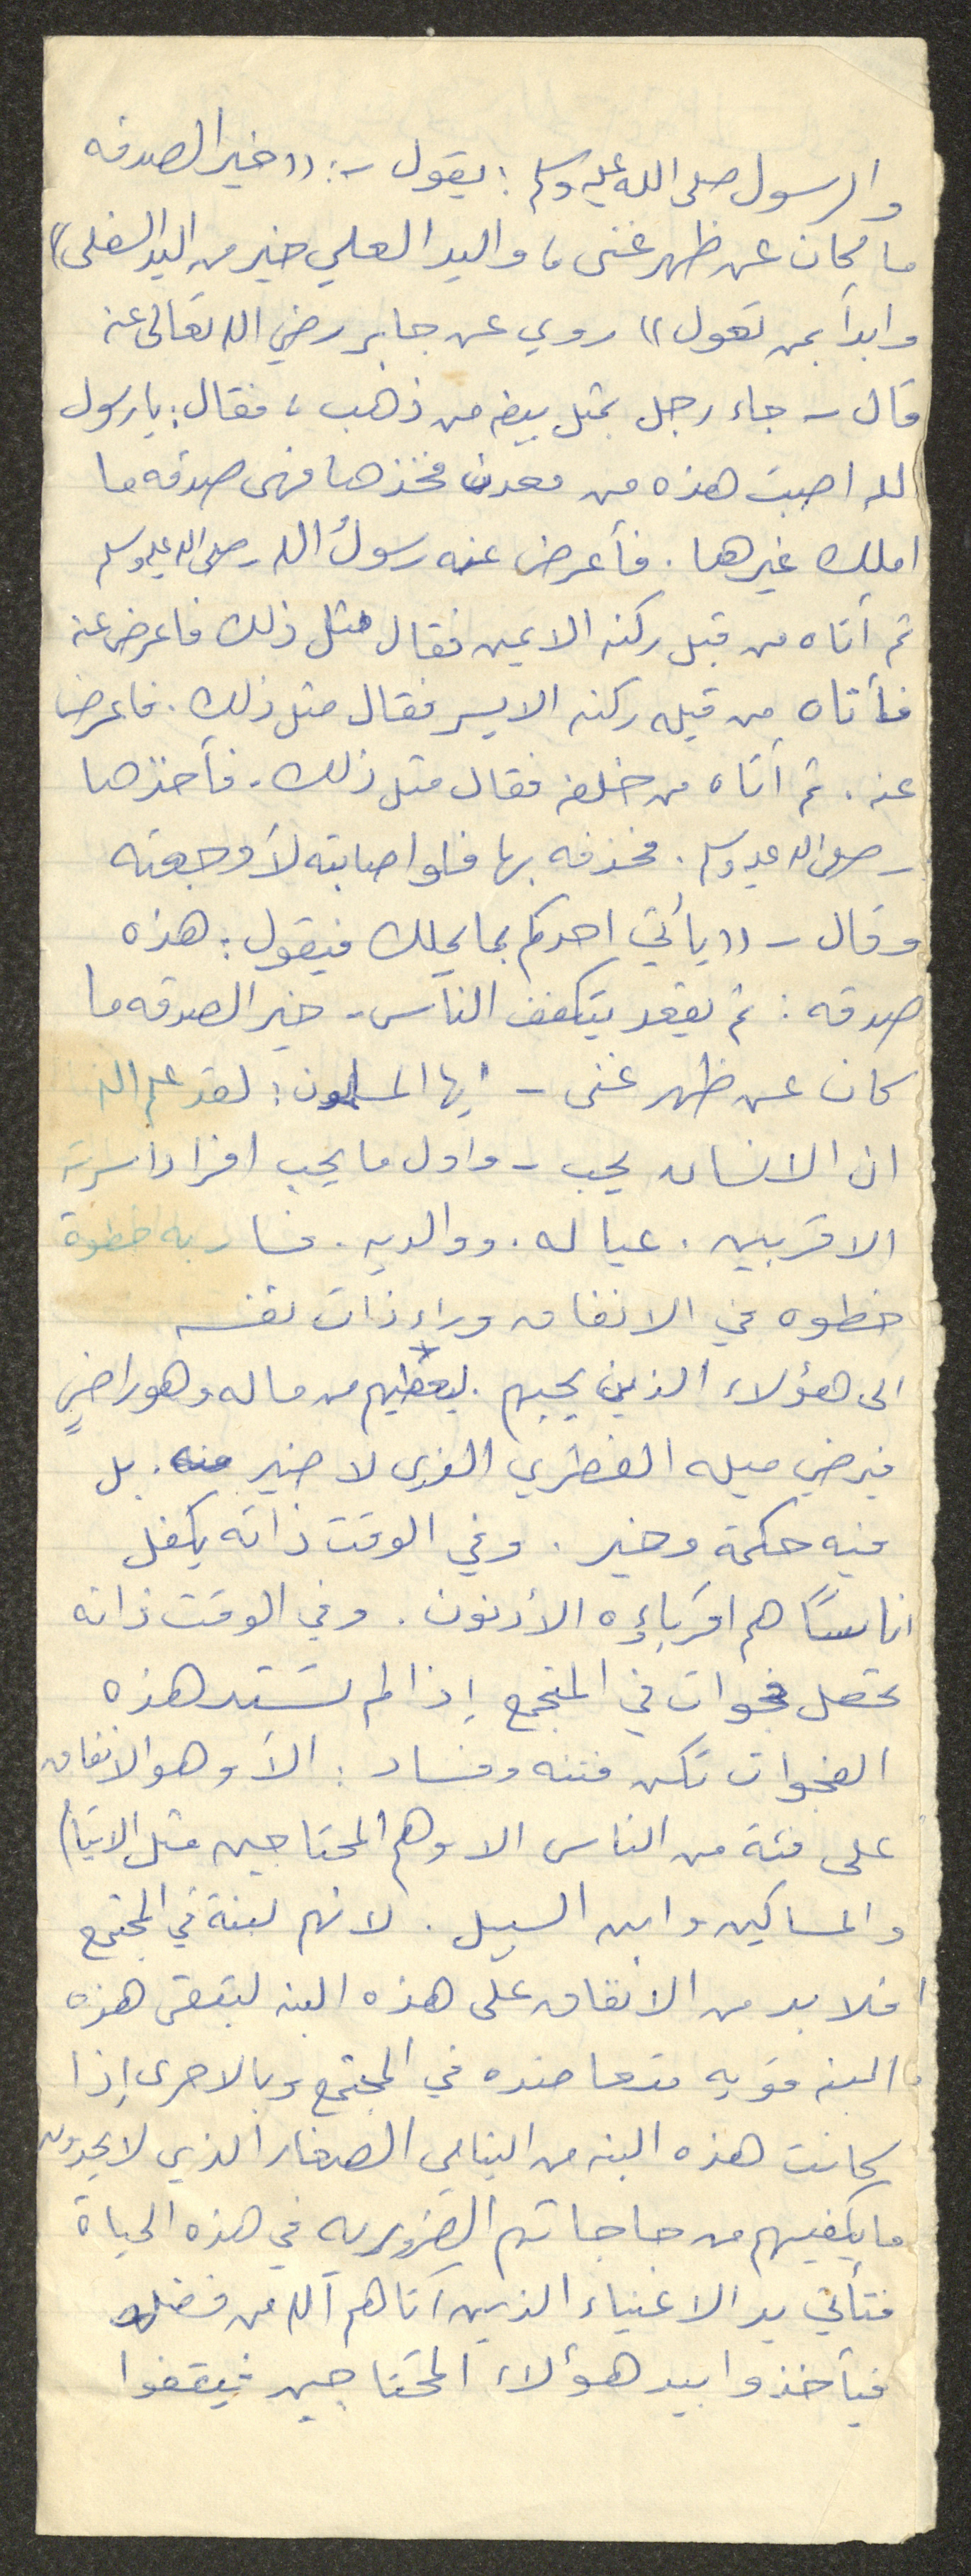 والرسول صلى الله عليه وسلم : يقول -: ((خير الصدقه
ما كان عن ظهر غنى ، واليد العلي خير من اليد السفلى))
وابدأ بمن تعول )) روي عن جابر رضي الله تعالى عنه
قال - جاء رجل بمثل بيضه من ذهب ، فقال : يا رسول
الله اصبت هذه من معدن فخذها فهى صدقه ما
املك غيرها . فأعرض عنه رسول الله صلى الله عليه وسلم
ثم أتاه من قبل ركنه الايمن فقال مثل ذلك فاعرض عنه
فأتاه من قبله ركنه الايسر فقال مثل ذلك . فاعرض
عنه . ثم أتاه من خلفه فقال مثل ذلك . فأخذها
صلى الله عليه وسلم . فحذفه بها فلو اصابته لأوجعته
وقال - ((يأتي احدكم بما يملك فيقول : هذه
صدقه : ثم يقعد يتكفف الناس - خير الصدقه ما
كان عن ظهر غنى - ايها المسلمون : لقد علم الله
ان الانسان يحب - واول ما يحب افراد اسرته
الاقربين . عياله . ووالديه . فسار به خطوة
خطوه في الانفاق وراء ذات نفسه
الى هؤلاء الذين يحبهم . ليعطيهم من ماله وهو راضٍ
فيرضي ميله الفطري الذي لا ضير منه . بل
فيه حكمة وخير . وفي الوقت ذاته يكفل
اناسًا هم اقرباؤه الأدنون . وفي الوقت ذاته
تحصل فجوات في المجتمع إذا لم تستد هذه
الفجوات تكن فتنه وفساد : الأ وهو الانفاق
على فئة من الناس الا وهم المحتاجين مثل الايتام
والمساكين وابن السبيل . لانهم لبنة في المجتمع
فلابد من الانفاق على هذه البنه لتبقى هذه
البنه قويه متعاضده في المجتمع وبالاحرى إذا
كانت هذه البنه من اليتامى الصغار الذي لا يجدون
ما يكفيهم من حاجاتهم الضروريه في هذه الحياة
فتأتي يد الاغنياء الذين آتاهم الله من فضله
فيأخذوا بيد هؤلاء المحتاجين فيقفوا